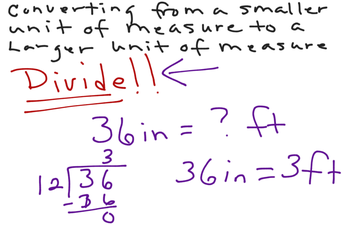 Converting from a smaller
unit of measure to a
Larger unit of measure
Divide!!
36in = ? ft
3
12 36
-36
0
36in=3ft